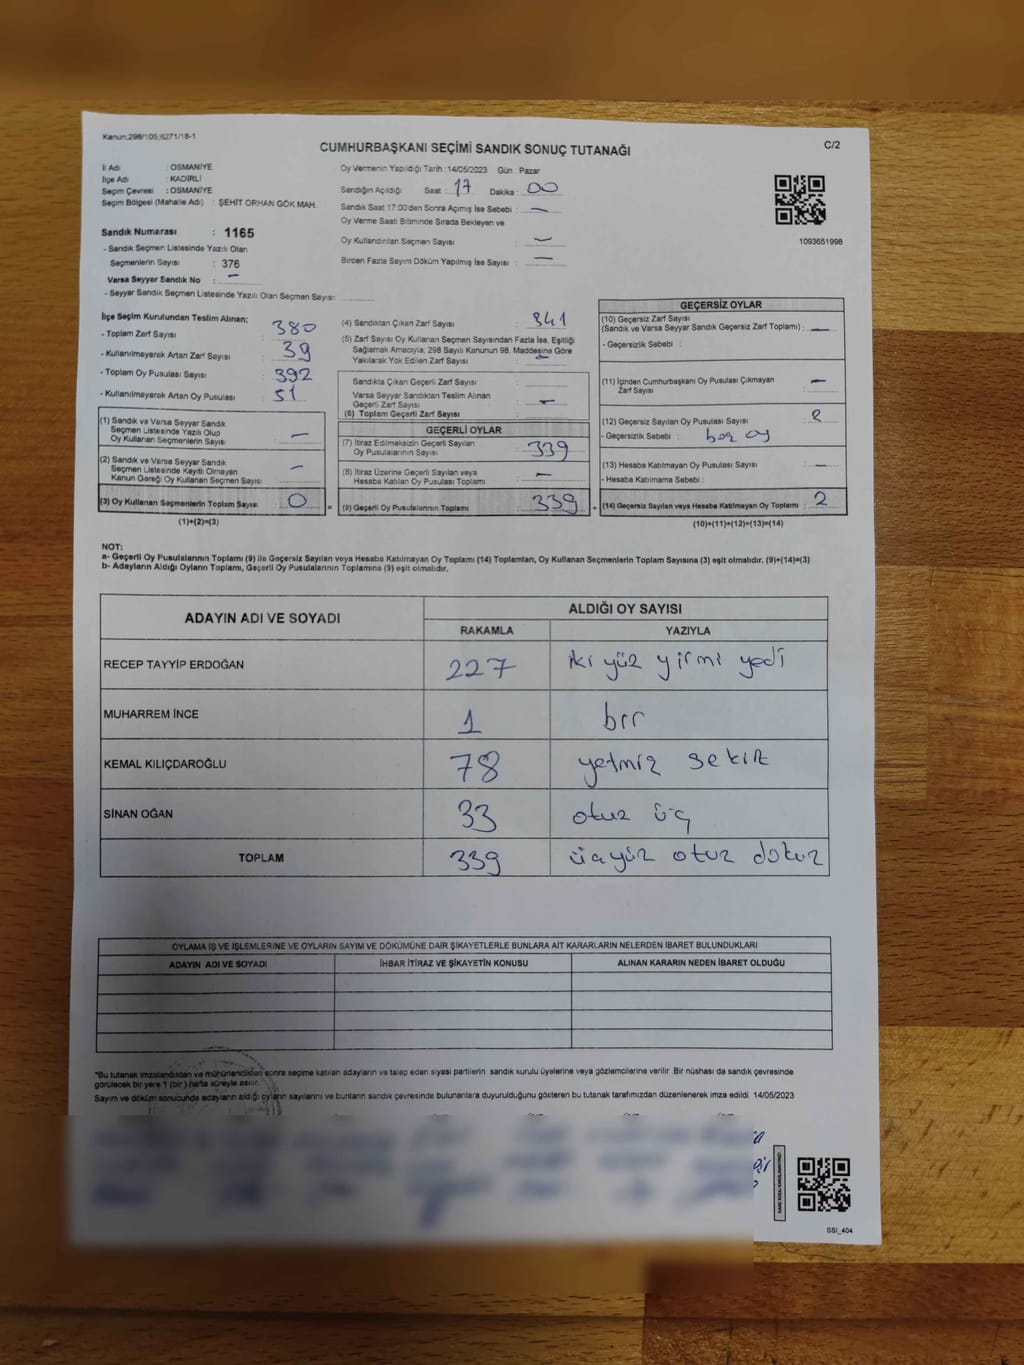 Kanun;298/105;6271/18-1
C/2
CUMHURBAŞKANI SEÇİMİ SANDIK SONUÇ TUTANAĞI
İl Adı : OSMANİYE
İlçe Adı : KADİRLİ
Seçim Çevresi : OSMANİYE
Seçim Bölgesi (Mahalle Adı) : ŞEHİT ORHAN GÖK MAH.
Sandık Numarası : 1165
- Sandık Seçmen Listesinde Yazılı Olan
Seçmenlerin Sayısı : 376
Varsa Seyyar Sandık No : —
- Seyyar Sandık Seçmen Listesinde Yazılı Olan Seçmen Sayısı:
Oy Vermenin Yapıldığı Tarih : 14/05/2023 Gün : Pazar
Sandığın Açıldığı Saat : 17 Dakika : 00
Sandık Saat 17:00'den Sonra Açımış İse Sebebi : —
Oy Verme Saati Bitiminde Sırada Bekleyen ve
Oy Kullandırılan Seçmen Sayısı : —
Birden Fazla Sayım Döküm Yapılmış İse Sayısı : —
1093651998
İlçe Seçim Kurulundan Teslim Alınan;
- Toplam Zarf Sayısı : 380
- Kullanılmayarak Artan Zarf Sayısı : 39
- Toplam Oy Pusulası Sayısı : 392
- Kullanılmayarak Artan Oy Pusulası : 51
(1) Sandık ve Varsa Seyyar Sandık
Seçmen Listesinde Yazılı Olup
Oy Kullanan Seçmenlerin Sayısı : —
(2) Sandık ve Varsa Seyyar Sandık
Seçmen Listesinde Kayıtlı Olmayan
Kanun Gereği Oy Kullanan Seçmen Sayısı : —
(3) Oy Kullanan Seçmenlerin Toplam Sayısı : 0
(1)+(2)=(3)
(4) Sandıktan Çıkan Zarf Sayısı : 341
(5) Zarf Sayısı Oy Kullanan Seçmen Sayısından Fazla İse, Eşitliği
Sağlamak Amacıyla; 298 Sayılı Kanunun 98. Maddesine Göre
Yakılarak Yok Edilen Zarf Sayısı : —
Sandıkta Çıkan Geçerli Zarf Sayısı :
Varsa Seyyar Sandıktan Teslim Alınan
Geçerli Zarf Sayısı : —
(6) Toplam Geçerli Zarf Sayısı :
GEÇERLİ OYLAR
(7) İtiraz Edilmeksizin Geçerli Sayılan
Oy Pusulalarının Sayısı : 339
(8) İtiraz Üzerine Geçerli Sayılan veya
Hesaba Katılan Oy Pusulası Toplamı : —
(9) Geçerli Oy Pusulalarının Toplamı : 339
GEÇERSİZ OYLAR
(10) Geçersiz Zarf Sayısı
(Sandık ve Varsa Seyyar Sandık Geçersiz Zarf Toplamı) : —
- Geçersizlik Sebebi :
(11) İçinden Cumhurbaşkanı Oy Pusulası Çıkmayan
Zarf Sayısı : —
(12) Geçersiz Sayılan Oy Pusulası Sayısı : 2
- Geçersizlik Sebebi : boz oy
(13) Hesaba Katılmayan Oy Pusulası Sayısı : —
- Hesaba Katılmama Sebebi :
(14) Geçersiz Sayılan veya Hesaba Katılmayan Oy Toplamı : 2
(10)+(11)+(12)+(13)=(14)
NOT:
a- Geçerli Oy Pusulalarının Toplamı (9) ile Geçersiz Sayılan veya Hesaba Katılmayan Oy Toplamı (14) Toplamları, Oy Kullanan Seçmenlerin Toplam Sayısına (3) eşit olmalıdır. (9)+(14)=(3)
b- Adayların Aldığı Oyların Toplamı, Geçerli Oy Pusulalarının Toplamına (9) eşit olmalıdır.
ADAYIN ADI VE SOYADI
ALDIĞI OY SAYISI
RAKAMLA YAZIYLA
RECEP TAYYİP ERDOĞAN 227 iki yüz yirmi yedi
MUHARREM İNCE 1 bir
KEMAL KILIÇDAROĞLU 78 yetmiz sekiz
SİNAN OĞAN 33 otuz üç
TOPLAM 339 üçyüz otuz dokuz
OYLAMA İŞ VE İŞLEMLERİNE VE OYLARIN SAYIM VE DÖKÜMÜNE DAİR ŞİKAYETLERLE BUNLARA AİT KARARLARIN NELERDEN İBARET BULUNDUKLARI
ADAYIN ADI VE SOYADI İHBAR İTİRAZ VE ŞİKAYETİN KONUSU ALINAN KARARIN NEDEN İBARET OLDUĞU
*Bu tutanak imzalandıktan ve mühürlendikten sonra seçime katılan adayların ve talep eden siyasi partilerin sandık kurulu üyelerine veya gözlemcilerine verilir. Bir nüshası da sandık çevresinde
görülecek bir yere 1 (bir) hafta süreyle asılır.
Sayım ve döküm sonucunda adayların aldığı oyların sayılarını ve bunların sandık çevresinde bulunanlara duyurulduğunu gösteren bu tutanak tarafımızdan düzenlenerek imza edildi. 14/05/2023
KARE KODU KARALAMAYINIZ!
SSİ_404